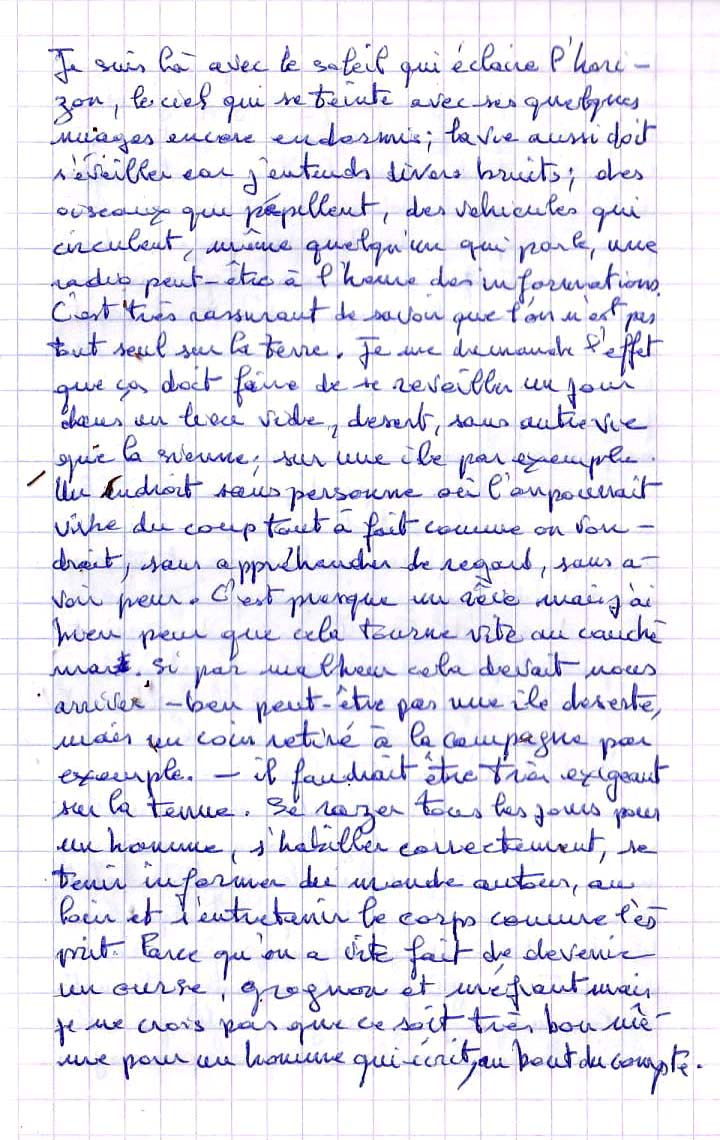 Je suis là avec le soleil qui éclaire l'hori-
zon, le ciel qui se teinte avec ses quelques
nuages encore endormis; la vie aussi doit
s'éveiller car j'entends divers bruits; des
oiseaux que pépillent, des vehicules qui
circulent, même quelqu'un qui parle, une
radio peut-être à l'heure des informations.
C'est très rassurant de savoir que l'on n'est pas
tout seul sur la terre. Je me demande l'effet
que ça doit faire de se reveiller un jour
dans un lieu vide, desert, sans autre vie
que la sienne; sur une île par exemple.
Un endroit sans personne où l'on pourrait
vivre du coup tout à fait comme on vou-
drait, sans appréhender le regard, sans a-
voir peur. C'est presque un rêve mais j'ai
bien peur que cela tourne vite au cauche
mar. Si par malheur cela devait nous
arriver - ben peut-être pas une île deserte,
mais un coin retiré à la campagne par
exemple. - il faudrait être très exigeant
sur la tenue. Se razer tous les jours pour
un homme, s'habiller correctement, se
tenir informer du monde autour, au
loin et s'entretenir le corps comme l'es
prit. Parce qu'on a vite fait de devenir
un ourse, grognon et méfiant mais
je ne crois pas que ce soit très bon mê-
me pour un homme qui écrit, au bout du compte.